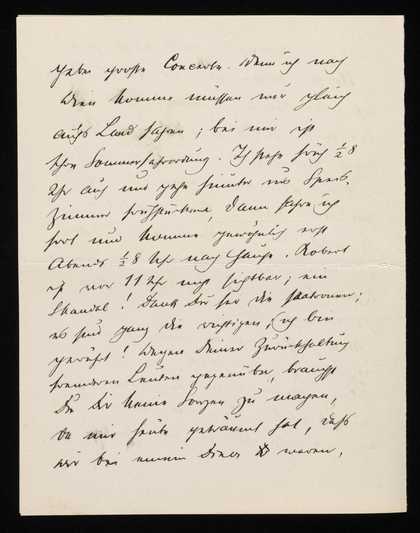 habe große Concerte. Wenn ich nach
Wien komme müssen wir gleich
aufs Land fahren; bei mir ist
schon Sommerfahrordnung. Ich stehe früh ½ 8
Uhr auf und gehe hinunter ins Speise-
zimmer frühstücken, dann fahre ich
fort und komme gewöhnlich erst
Abends ½ 8 Uhr nach Hause. Robert
ist vor 11 Uhr nicht sichtbar; ein
Skandal! Dank Dir für die ;
es sind ganz die richtigen, ich bin
gerührt! Wegen Deiner Zurückhaltung
fremderen Leuten gegenüber, brauchst
Du Dir keine Sorgen zu machen,
da mir heute geträumt hat, daß
wir bei einem Diner waren,